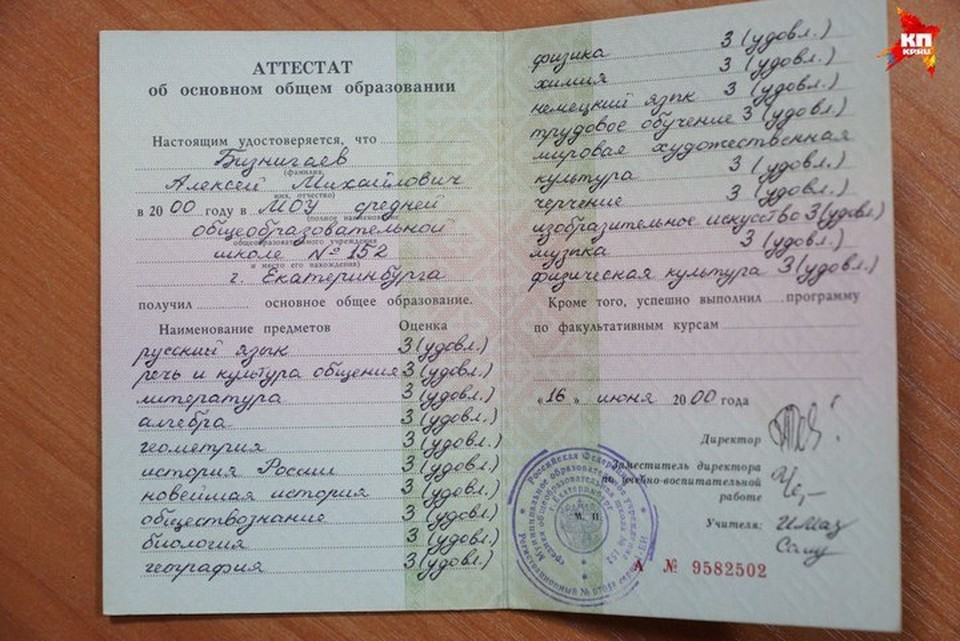 АТТЕСТАТ
об основном общем образовании
Настоящим удостоверяется, что
Бизнигаев
(фамилия,
Алексей Михайлович
имя, отчество)
в 2000 году в МОУ средней
(полное наименование
общеобразовательной
общеобразовательного учреждения
школе № 152
и место его нахождения)
г. Екатеринбурга
получил основное общее образование.
Наименование предметов Оценка
русский язык 3 (удовл.)
речь и культура общения 3 (удовл.)
литература 3 (удовл.)
алгебра 3 (удовл.)
геометрия 3 (удовл.)
история России 3 (удовл.)
новейшая история 3 (удовл.)
обществознание 3 (удовл.)
биология 3 (удовл.)
география 3 (удовл.)
физика 3 (удовл.)
химия 3 (удовл.)
немецкий язык 3 (удовл.)
трудовое обучение 3 (удовл.)
мировая художественная
культура 3 (удовл.)
черчение 3 (удовл.)
изобразительное искусство 3 (удовл.)
музыка 3 (удовл.)
физическая культура 3 (удовл.)
Кроме того, успешно выполнил программу
по факультативным курсам
«16» июня 2000 года
Директор
Заместитель директора
по учебно-воспитательной
работе
Учителя:
М. П.
Российская Федерация
Муниципальное образовательное учреждение
средняя общеобразовательная школа № 152
г. Екатеринбург
А № 9582502
КП
KP.RU